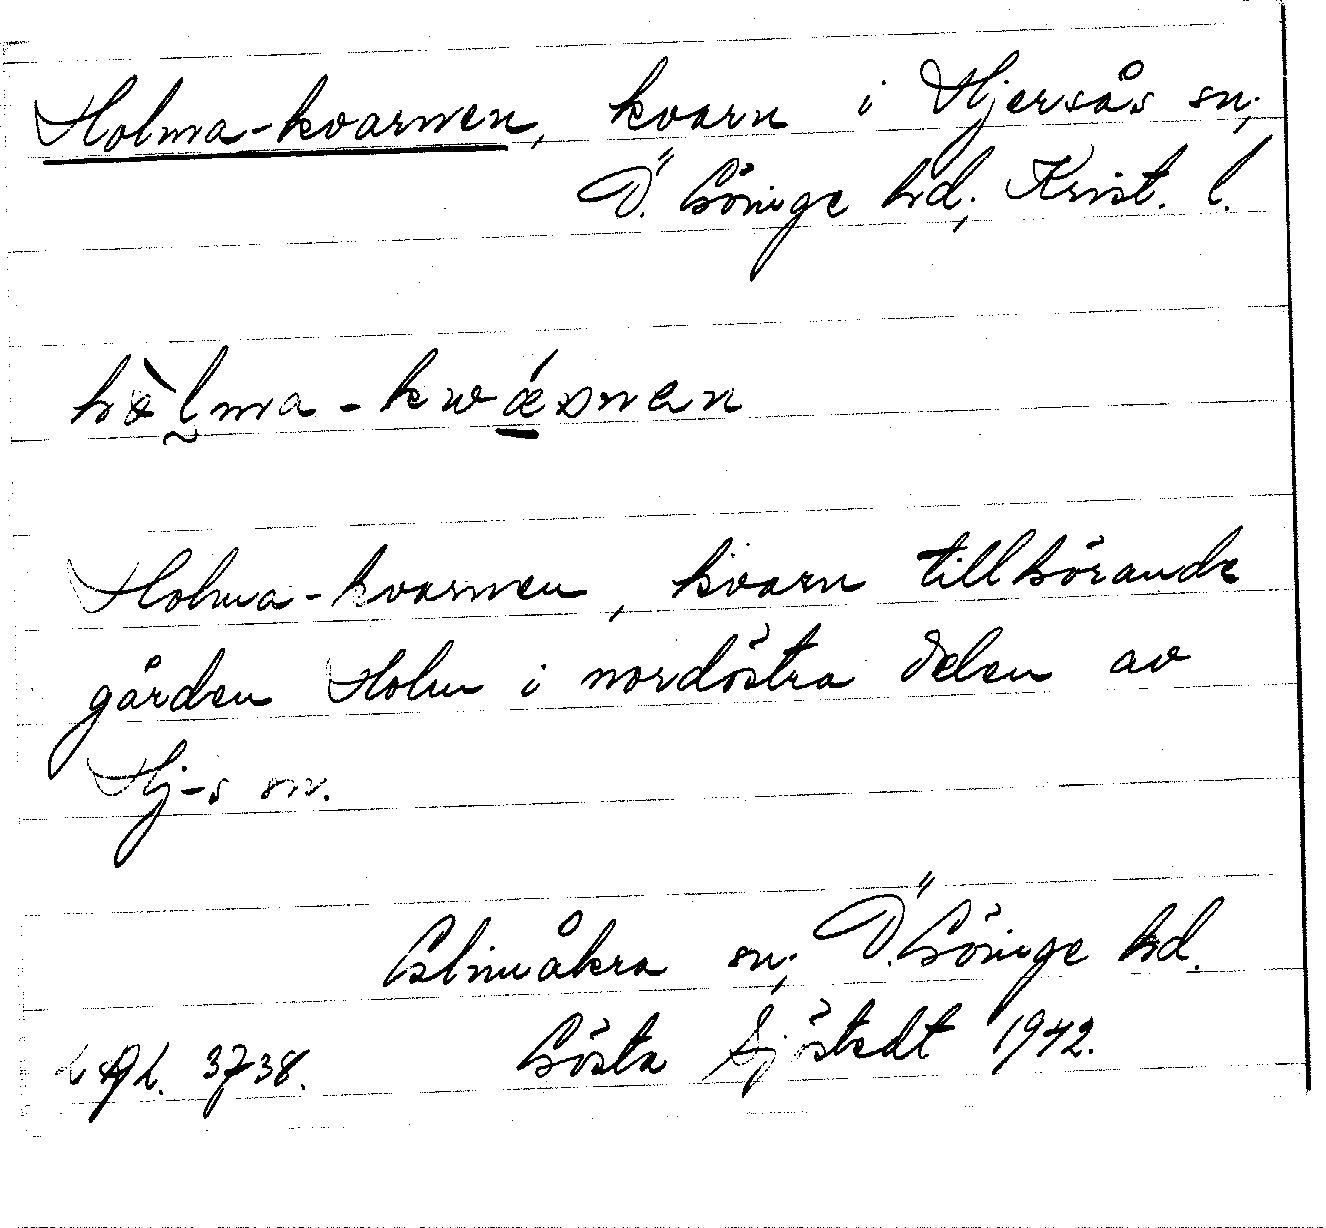 Holma-kvarnen, kvarn i Hjersås sn;
Ö. Göinge hd; Krist. l.
Holma-kvarnen, kvarn tillhörande
gården Holm i nordöstra delen av
Hj-s sn.
Glimåkra sn; Ö. Göinge hd.
3738. Gösta Sjöstedt 1942.